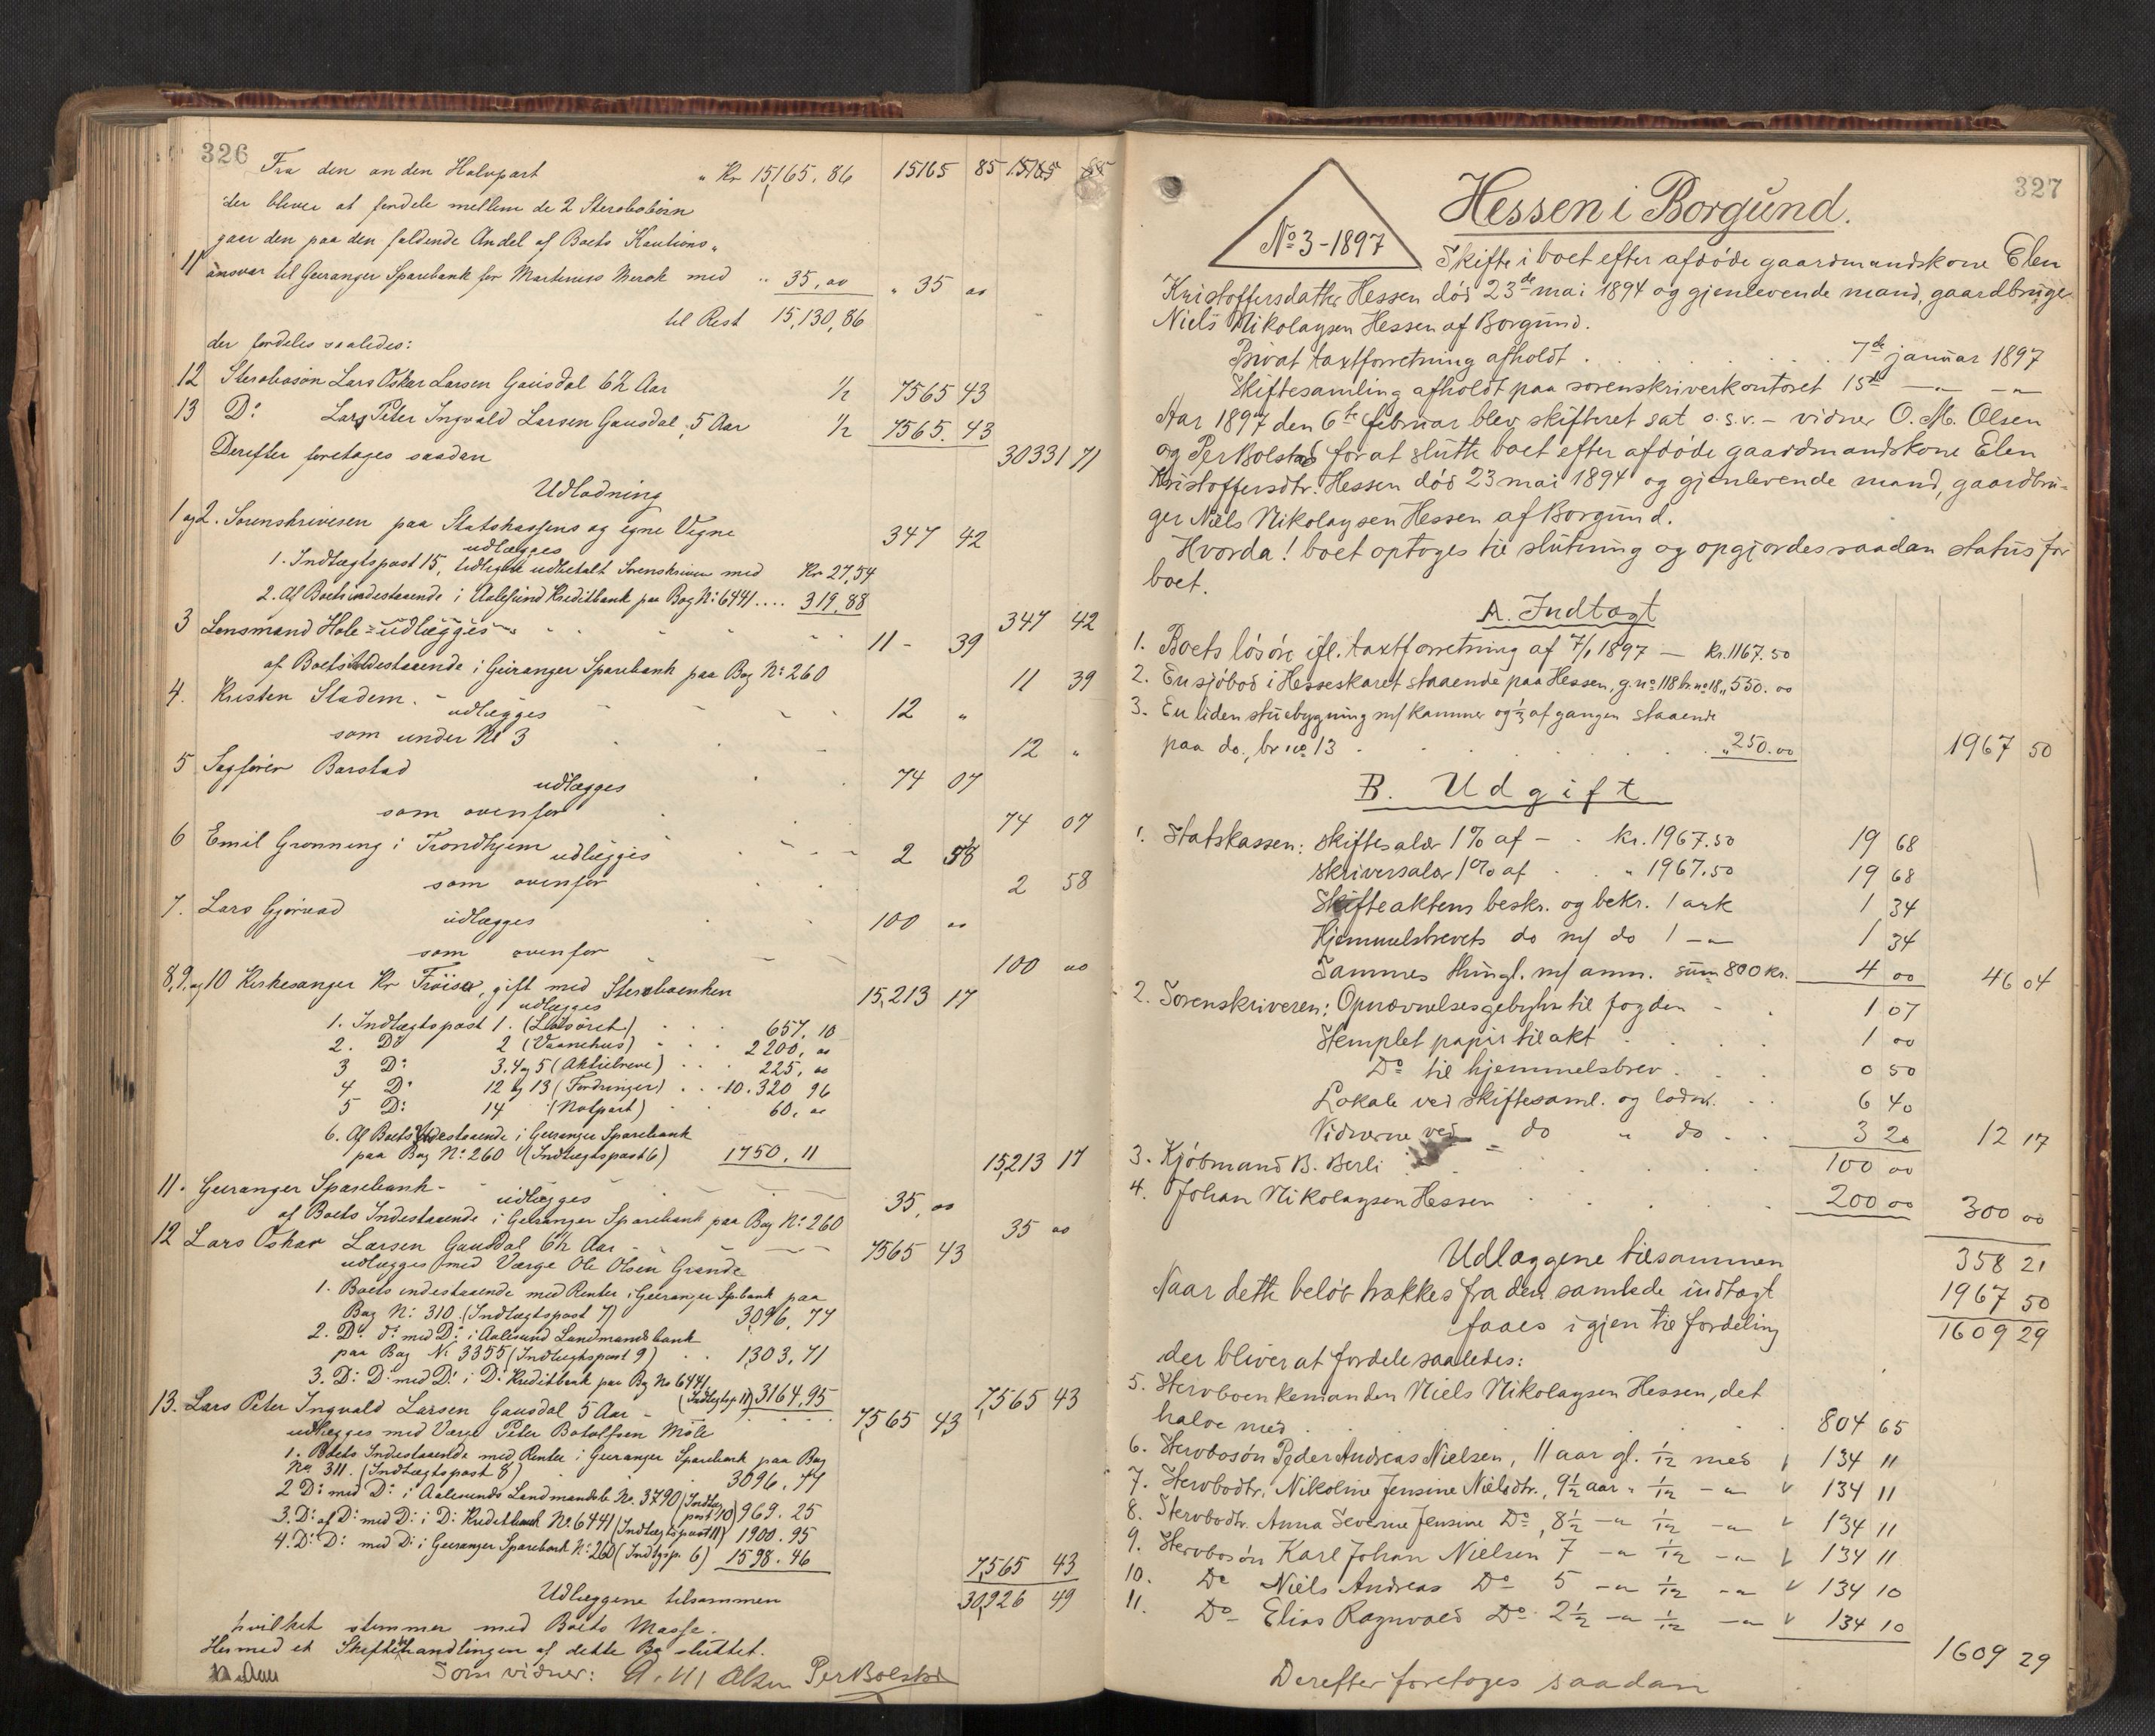 326
Fra den anden Halvpart " Kr 15,165,86 15165 85 15165 85
der bliver at fordele mellem de 2 Sterbobørn
gaar den paa den faldende Andel af Boets Kautions-
11 ansvar til Geiranger Sparebank for Martinus Merok med " 35,00 " 35 00
til Rest 15,130,86
der fordeles saaledes:
12 Stervbosøn Lars Oskar Larsen Gausdal 6½ Aar ½ 7565 43
13 Do Lars Peter Ingvald Larsen Gausdal, 5 Aar ½ 7565. 43
30331 71
Derefter foretages saadan
Udlodning
1 og 2. Sorenskriveren paa Statskassens og egne Vegne 347 42
udlægges
1. Indtægtspost 15, udbetalt Sorenskriveren med Kr 27,54
2. Af Boets indestaaende i Aalesund Kreditbank paa Bog No 6441 .... 319,88
347 42
3 Lensmand Hole udlægges 11 - 39
af Boets Indestaaende i Geiranger Sparebank paa Bog No 260 11 39
4. Kristen Stadem. udlægges 12 "
som under No 3 12 "
5 Sagfører Barstad udlægges 74 07
som ovenfor 74 07
6 Emil Grønning i Trondhjem udlægges 2 58
som ovenfor 2 58
7. Lars Gjørvad udlægges 100 00
som ovenfor 100 00
8, 9. og 10 Kirkesanger Kr Frøisa, gift med Stervboenken 15,213 17
udlægges
1. Indtægtspost 1. (Løsøret) 657, 10
2. Do 2 (Vaanehus) 2200, 00
3 Do 3. 4 og 5 (Aktiebreve) 225, 00
4 Do 12 og 13 (Fordringer) 10.320 96
5 Do 14 (Notpart) 60, 00
6. Af Boets Indestaaende i Geiranger Sparebank
paa Bog No 260 (Indtægtspost 6) 1750, 11
15,213 17
11. Geiranger Sparebank - udlægges 35, 00
af Boets Indestaaende i Geiranger Sparebank paa Bog No 260 35 00
12 Lars Oskar Larsen Gausdal 6½ Aar 7565 43
udlægges med Værge Ole Olsen Grande
1. Boets indestaaende med Renter i Geiranger Sp.bank paa
Bog No 310. (Indtægtspost 7) 3096, 77
2. Do do med Do i Aalesund Landmandsbank
paa Bog No 3355 (Indtægtspost 9) 1303, 71
3. Do Do med Do i Do Kreditbank paa Bg No 6441
(Indtægtsp. 11) 3164,95
7,565 43
13. Lars Peter Ingvald Larsen Gausdal 5 Aar - 7,565 43
udlægges med Værge Peter Botolfsen Møle
1. Boets Indestaaende med Renter i Geiranger Sparebank paa Bog
No 311. (Indtægtspost 8) 3096. 77
2 Do med Do i Aalesunds Landmandsb. No. 3790 (Indtægtspost 10) 969. 25
3. Do af Do med Do i Do Kreditbank No. 6441 (Indtægtspost 11) 1900. 95
4. Do Do med Do i Geiranger Sparebank No 260 (Indtgsp. 6) 1598. 46
7,565 43
Udlæggene tilsammen 30,926 49
hvilket stemmer med Boets Masse.
Hermed er Skiftehandlingen af dette Bo sluttet.
Som vidner: O. M. Olsen Per Bolstad
327
No 3-1897
Hessen i Borgund.
Skifte i boet efter afdøde gaardmandskone Elen
Kristoffersdatter Hessen død 23de mai 1894 og gjenlevende mand, gaardbruger
Niels Nikolaysen Hessen af Borgund.
Privat taxtforretning afholdt . . . . . . 7de januar 1897
Skiftesamling afholdt paa sorenskriverkontoret 15de — " — "
Aar 1897 den 6te februar blev skifteret sat o. s. v. - vidner O. M. Olsen
og Per Bolstad for at slutte boet efter afdøde gaardmandskone Elen
Kristoffersdtr. Hessen død 23 mai 1894 og gjenlevende mand, gaardbru-
ger Niels Nikolaysen Hessen af Borgund.
Hvorda! boet optoges til slutning og opgjordes saadan status for
boet.
A. Indtægt
1. Boets løsøre ifl. taxtforretning af 7/1 1897 — kr. 1167.50
2. En sjøbod i Hesseskaret staaende paa Hessen, g. no 118 br. no 18 " 550. 00
3. En liden stuebygning m/ kammer og ⅓ af gangen staaende
paa do., br no 13 . . . . . . " 250.00 1967 50
B. Udgift
1. Statskassen: Skiftesalær 1% af — . kr. 1967.50 19 68
Skriversalær 1% af . . " 1967.50 19 68
Skifteaktens beskr. og bekr. 1 ark 1 34
Hjemmelsbrevets do m/ do 1 — " 1 34
Sammes thingl. m/ anm. sum 800 kr. 4 00 46 04
2. Sorenskriveren: Opnævnelsesgebyhr til fogden - . 1 07
Stemplet papir til akt . . . . 1 00
Do til hjemmelsbrev . . . 0 50
Lokale ved skiftesaml. og lodn. . . 6 40
Vidnerne ved do " do . . 3 20 12 17
3. Kjøbmand B. Berli . . . . . 100 00
4. Johan Nikolaysen Hessen . . . . . 200 00 300 00
Udlæggene tilsammen 358 21
Naar dette beløb trækkes fra den samlede indtægt 1967 50
faaes igjen til fordeling 1609 29
der bliver at fordele saaledes:
5. Stervboenkemanden Niels Nikolaysen Hessen, det
halve med . . . . . . 804 65
6. Stervbosøn Peder Andreas Nielsen, 11 aar gl. 1/12 med 134 11
7. Stervbodtr. Nikoline Jensine Nielsdtr., 9½ aar " 1/12 — " 134 11
8. Stervbodtr. Anna Severine Jensine Do, 8½ — " 1/12 — " 134 11
9. Stervbosøn Karl Johan Nielsen 7 — " 1/12 — " 134 11
10. Do Niels Andreas Do 5 — " 1/12 — " 134 10
11. Do Elias Ragnvald Do 2½ — " 1/12 — " 134 10
1609 29
Derefter foretages saadan